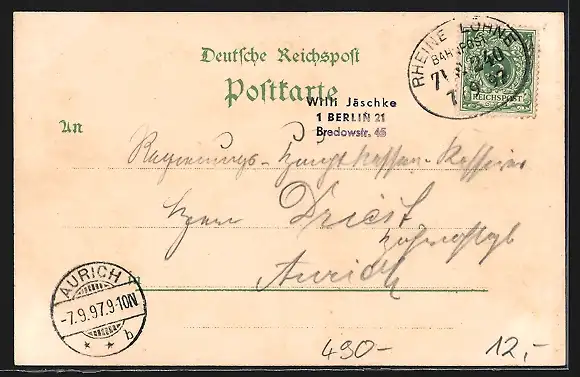 Deutsche Reichspost
Postkarte
RHEINE LÖHNE
BAHNPOST
240
7 9 97
REICHSPOST
Willi Jäschke
1 BERLIN 21
Bredowstr. 45
An
Regierungs-Hauptkassen-Kassierer
Herrn Driest
Aurich
AURICH
-7.9.97.9-10N
* * b
490-
12,-